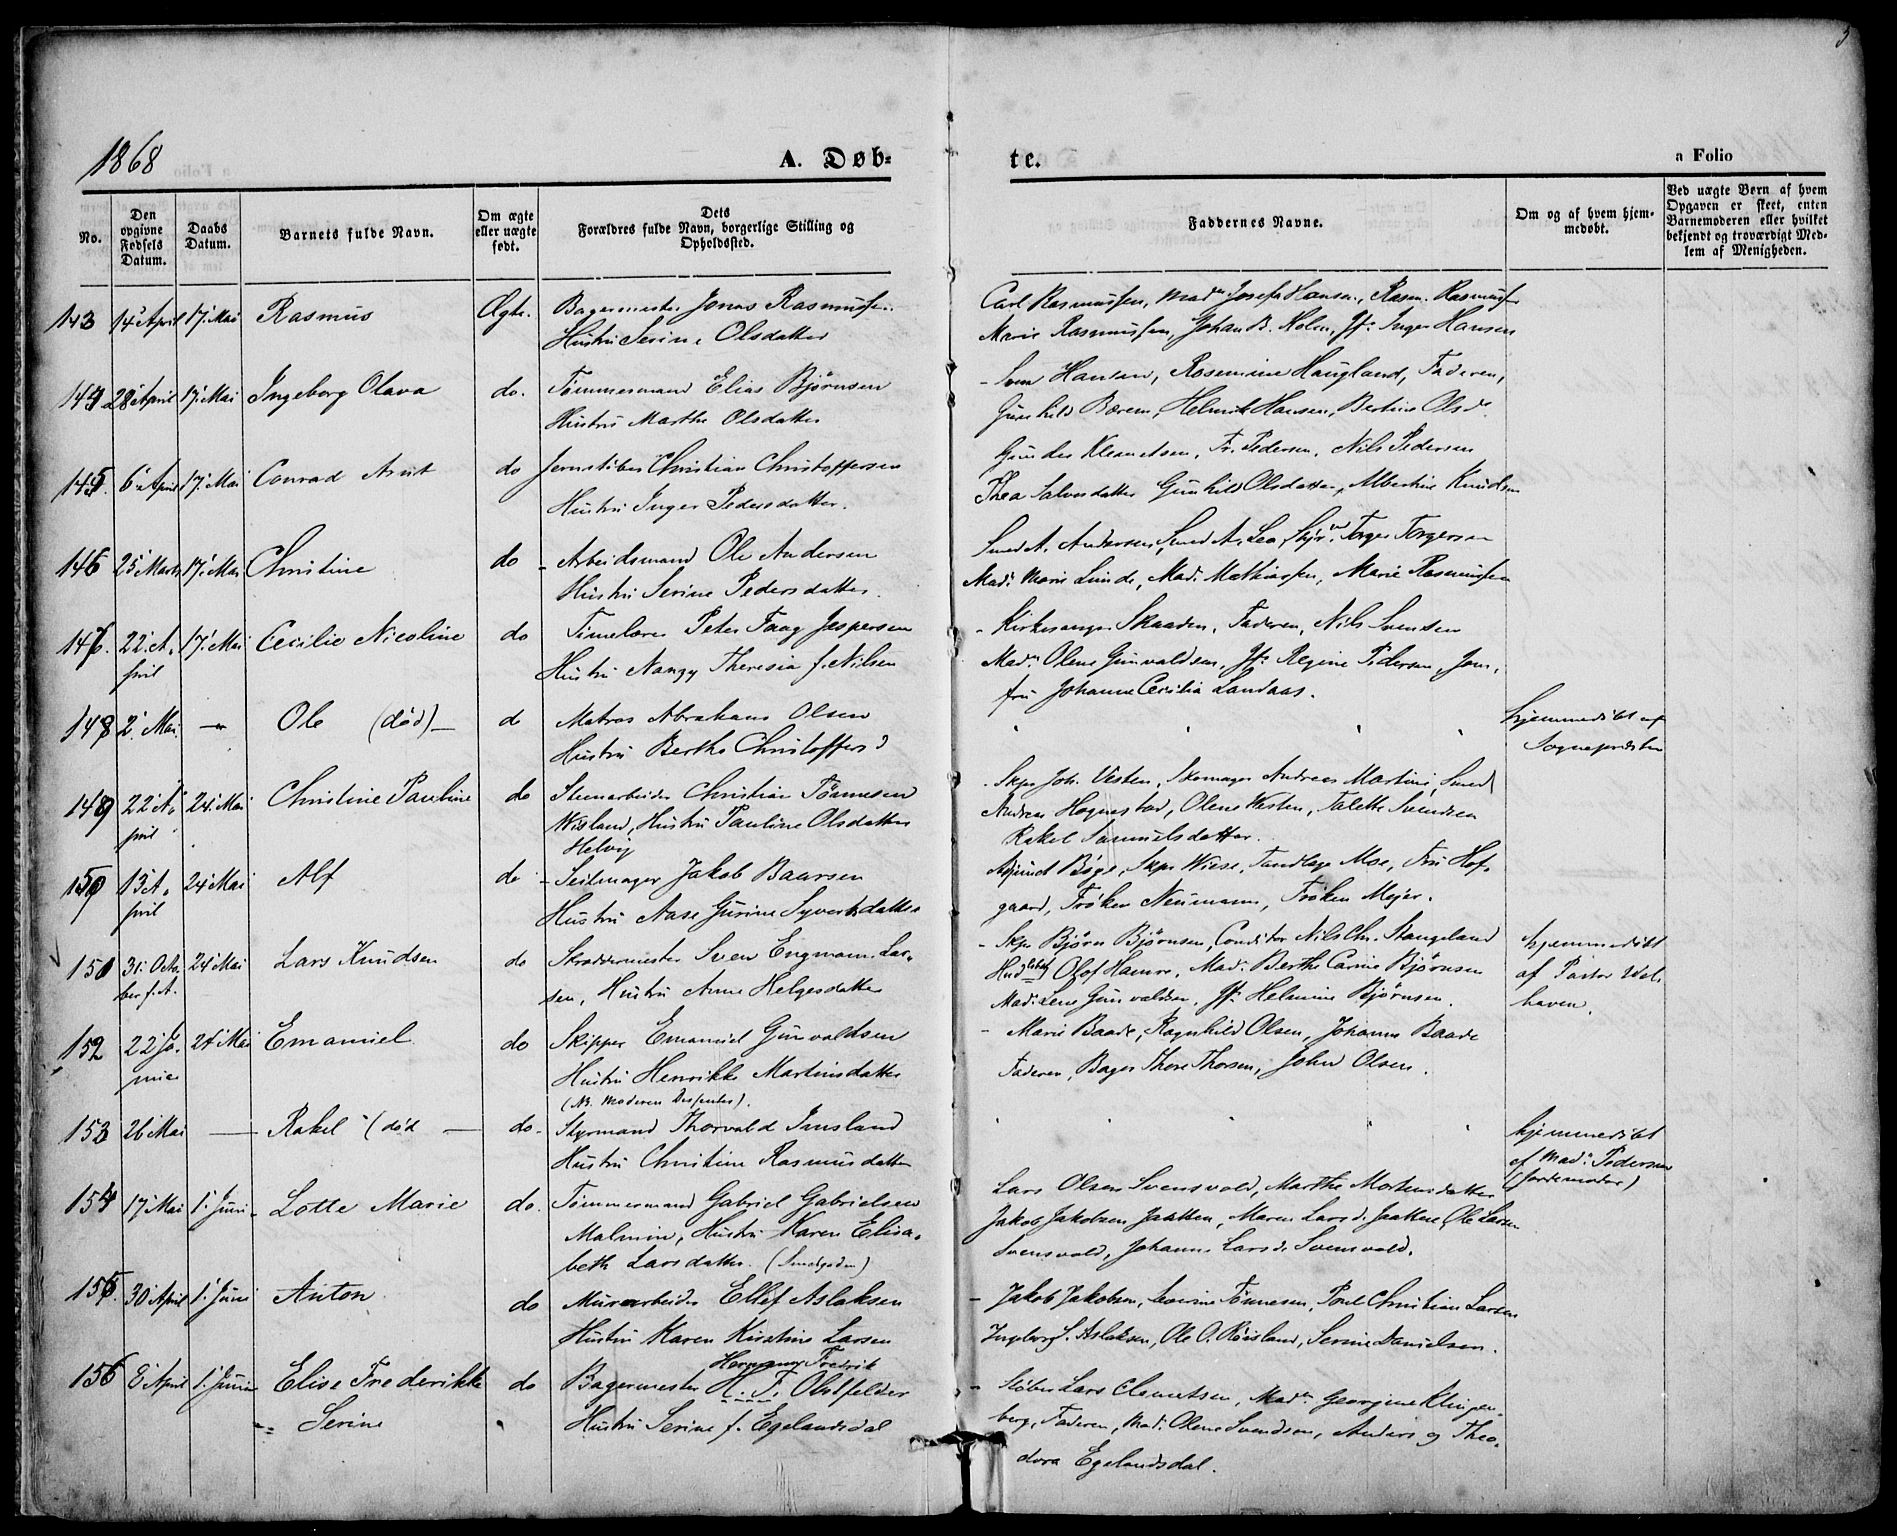 3
1868
A. Døb-
te.
a Folio
No.
Den opgivne Fødsels Datum.
Daabs Datum.
Barnets fulde Navn.
Om ægte eller uægte født.
Dets Forældres fulde Navn, borgerlige Stilling og Opholdssted.
Faddernes Navne.
Om og af hvem hjem-medøbt.
Ved uægte Børn af hvem Opgaven er skeet, enten Barnemoderen eller hvilket bekjendt og troværdigt Med-lem af Menigheden.
143 14 April 17. Mai Rasmus Ægte. Bagermester Jonas Rasmussen
Hustru Serine Olsdatter
Carl Rasmussen, Madm Josefa Hansen, Rasm. Rasmussen
Marie Rasmussen, Johan B. Holm, Jf. Inger Hansen
144 28 April 17. Mai Ingeborg Olava do. Tømmermand Elias Bjørnsen
Hustru Marthe Olsdatter
- Sven Hansen, Rosemine Haugland, Faderen,
Gunhild Bærem, Helmik Hansen, Bertine Olsd.
145. 6 April 17. Mai Conrad Arnt do Jernstøber Christian Christoffersen
Hustru Inger Pedersdatter.
Gunder Klemetsen, Fr. Pedersen, Nils Pedersen
Thea Salvesdatter Gunhild Olsdatter, Albertine Knudsen
146 25 Marts 17. Mai Christine do - Arbeidsmand Ole Andersen
Hustru Serine Pedersdatter.
Smed A. Andersen, Smed A. Lea, Torger Torgersen
Mad. Marie Lunde, Mad. Mathiassen, Marie Rasmussen
147. 22. A- 17. Mai Cecilie Nicoline do Timelærer Peter Faag Jespersen
pril Hustru Nanzy Theresia f. Nilsen
- Kirkesanger Skaaden, Faderen, Nils Svensen
Madm Olene Gunvaldsen, Jf. Regine Pedersen, Jom-
fru Johanne Cecilia Landaas.
148 2. Mai — Ole (død) — do Matros Abraham Olsen
Hustru Berthe Christoffersd
hjemmedøbt af
Sognepresten
149 22 A- 24. Mai Christine Pauline do Stenarbeider Christian Tønnesen
pril Wisland, Hustru Pauline Olsdatter
Helvig
- Skpr Joh. Vesten, Skomager Andreas Martini, Smed
Andreas Hognestad, Olene Vesten, Talette Svendsen
Rakel Samuelsdatter.
150 13 A- 24 Mai Alf do - Seilmager Jakob Baarsen
pril Hustru Aase Gurine Syvertsdatter
Bøge, Skpr Wiese, Tandlæge Moe, Fru Hof-
gaard, Frøken Neumann, Frøken Mejer.
151 31. Octo- 24 Mai Lars Knudsen do Skræddermester Sven Engmann Lar-
ber f. A. sen, Hustru Anne Helgesdatter
- Skpr Bjørn Bjørnsen, Conditor Nils Chr. Stangeland
Olof Hamre, Mad. Berthe Carine Bjørnsen
Mad. Lene Gunvaldsen, Jf. Helmine Bjørnsen.
hjemmedøbt
af Pastor Wel-
haven.
152 22 Ja- 24 Mai Emanuel do Skipper Emanuel Gunvaldsen
nuar Hustru Henrikke Martinsdatter
(NB. Moderen Dissenter).
- Marie Baade, Ragnhild Olsen, Johanne Baade
Faderen, Bager Thore Thorsen, John Olsen.
153 26 Mai — Rakel (død — do - Styrmand Thorvald Imsland
Hustru Christine Rasmusdatter
hjemmedøbt
af Madm Pedersen
(Jordemoder)
154 17 Mai 1. Juni Lotte Marie do. Tømmermand Gabriel Gabrielsen
Malmin, Hustru Karen Elisa-
beth Larsdatter. (Smalgaden)
Lars Olsen Svensvold, Marthe Mortensdatter
Jakob Jakobsen Jaatten, Maren Larsd. Jaatten, Ole Larsen
Svensvold, Johanne Larsd. Svensvold.
155. 30 April 1. Juni Anton do Murarbeider Ellef Aslaksen
Hustru Karen Kirstine Larsen
- Jakob Jakobsen, Severine Tønnesen, Poul Christian Larsen
Ingeborg S. Aslaksen, Ole O. Røisland, Serine Danielsen.
156 8 April 1. Juni Elise Frederikke do Bagermester H. F. Obstfelder
Hermann Fredrik
Serine Hustru Serine f. Egelandsdal
- Støber Lars Clemetsen, Madm Georgine Klingen-
berg, Faderen, Mad. Olene Svendsen, Anders og Theo-
dora Egelandsdal.